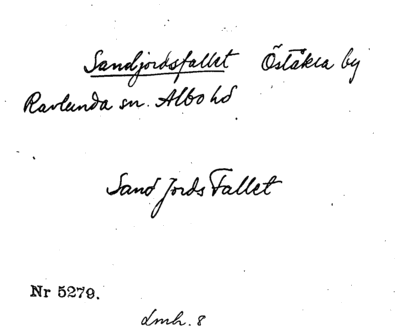 Sandjordsfallet Öståkra by
Ravlunda sn. Albo hd
Sand Jords Fallet
Nr 5279.
lmh. 8